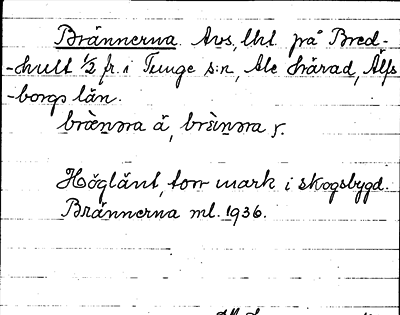 Brännerna. Avs, lht. på Bred-
-hult 1/2 fr. i Tunge s:n, Ale härad, Älfs
-borgs län.
brænəra ä, brä̀nəra y.
Högländ, torr mark i skogsbygd.
Brännerna ml. 1936.